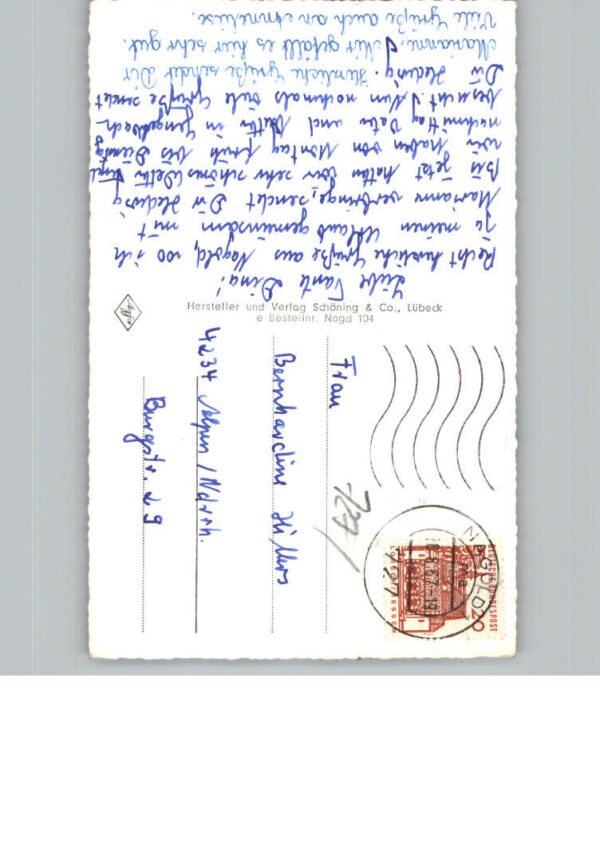 Liebe Tante Dina!
Recht herzliche Grüße aus Nagold, wo ich
zu meinen Urlaub gemeinsam mit
Marianne verbringe, sendet Dir Hedwig
Bis jetzt hatten wir sehr schönes Wetter
wir haben von Montag früh bis Dienstag
nachmittag Vater und Mutter in
besucht. Nun nochmals viele Grüße sendet
Dir Hedwig. Herzliche Grüße sendet Dir
Marianne. Mir gefällt es hier sehr gut.
Viele Grüße auch an Anneliese.
Hersteller und Verlag Schöning & Co., Lübeck
e Bestellnr. Nagd 104
Frau
Bernhardine Hüllers
4234 Alpen / Ndrrh.
Burgstr. 29
727
NAGOLD
727
DEUTSCHE BUNDESPOST
20